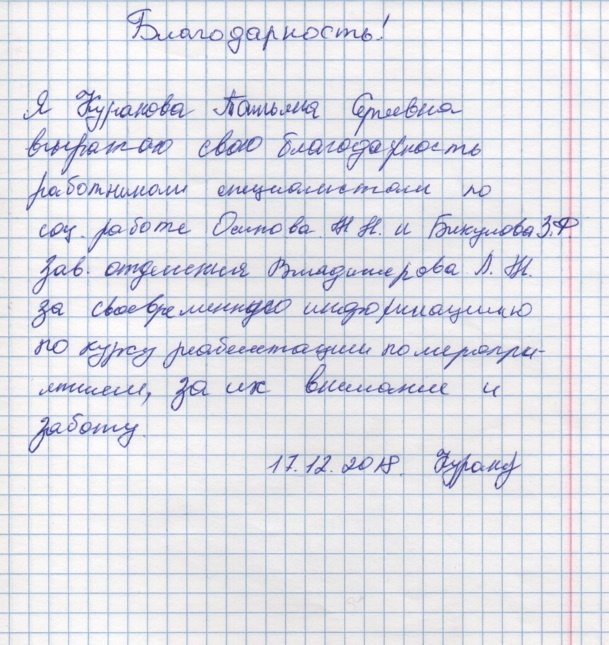 Благодарность!
Я Куракова Татьяна Сергеевна
выражаю свою благодарность
работникам специалистам по
соц. работе Осипова Н.Н. и Бикулова З.Ф
Зав. отделения Владимирова Л. Н.
за своевременную информацию
по курсу реабилитации по меропри-
ятиям, за их внимание и
заботу.
17.12.2018. Кураков